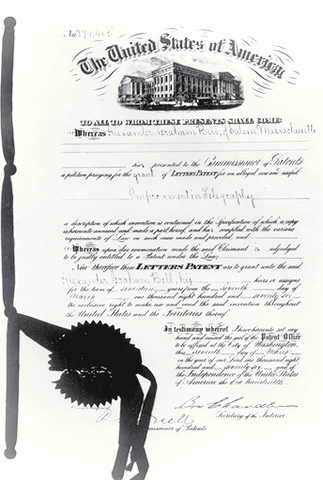 No. 174,465
The United States of America
TO ALL TO WHOM THESE PRESENTS SHALL COME:
Whereas Alexander Graham Bell, of Salem, Massachusetts
has presented to the Commissioner of Patents
a petition praying for the grant of LETTERS PATENT for an alleged new and useful
Improvement in Telegraphy
a description of which invention is contained in the Specification of which a copy
is hereunto annexed and made a part hereof, and has complied with the various
requirements of Law in such cases made and provided, and
Whereas upon due examination made the said Claimant is adjudged
to be justly entitled to a Patent under the Law.
Now therefore these LETTERS PATENT are to grant unto the said
Alexander Graham Bell, his heirs or assigns
for the term of seventeen years from the seventh day of
March one thousand eight hundred and seventy-six
the exclusive right to make use and vend the said invention throughout
the United States and the Territories thereof.
In testimony whereof I have hereunto set my
hand and caused the seal of the Patent Office
to be affixed at the City of Washington
this seventh day of March
in the year of our Lord one thousand eight
hundred and seventy-six and of
the Independence of the United States
of America the one hundredth.
Secretary of the Interior
Commissioner of Patents